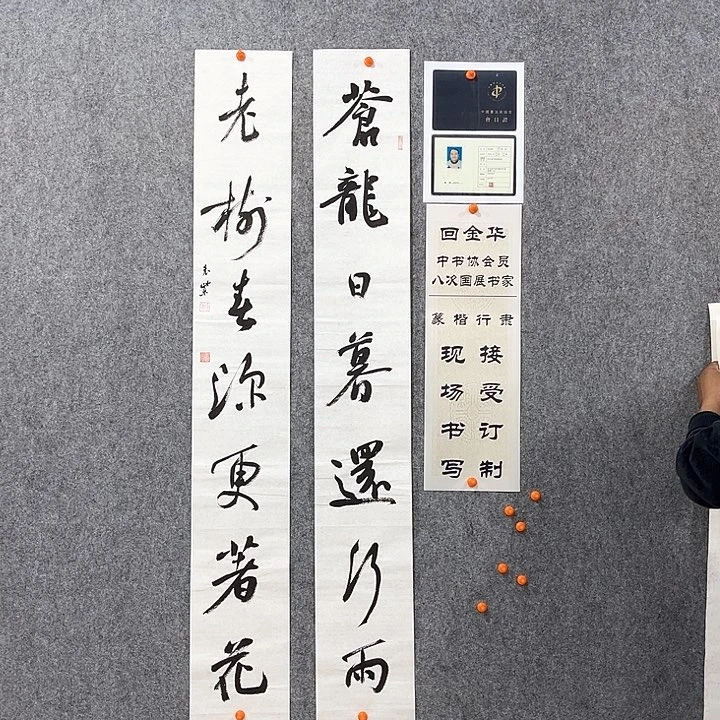 蒼龍日暮還行雨
老樹春深更著花
中國書法家協會
會員證
回金华
中书协会员
八次国展书家
篆楷行隶
接受订制
现场书写